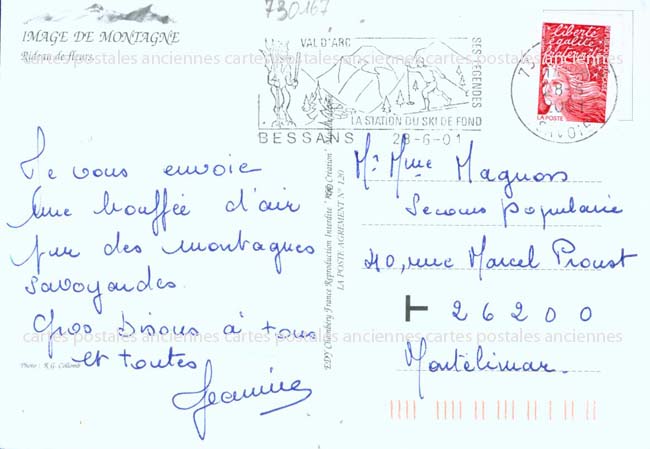 730167
IMAGE DE MONTAGNE
Rideau de fleurs
VAL D'ARC
SES LEGENDES
LA STATION DU SKI DE FOND
BESSANS 28-6-01
liberté
égalité
fraternité
LA POSTE
SAVOIE
cartes postales anciennes cartes postales anciennes cartes postales anciennes
Je vous envoie
une bouffée d'air
pur des montagnes
savoyardes.
Gros bisous à tous
et toutes
Jeanine
Photo : R.G. Collomb
EDY Chambéry France Reproduction Interdite
LA POSTE AGREMENT N° 120
Mr Mme Magnons
Secours populaire
40, rue Marcel Proust
T 26200
Montélimar.
cartes postales anciennes cartes postales anciennes cartes postales anciennes